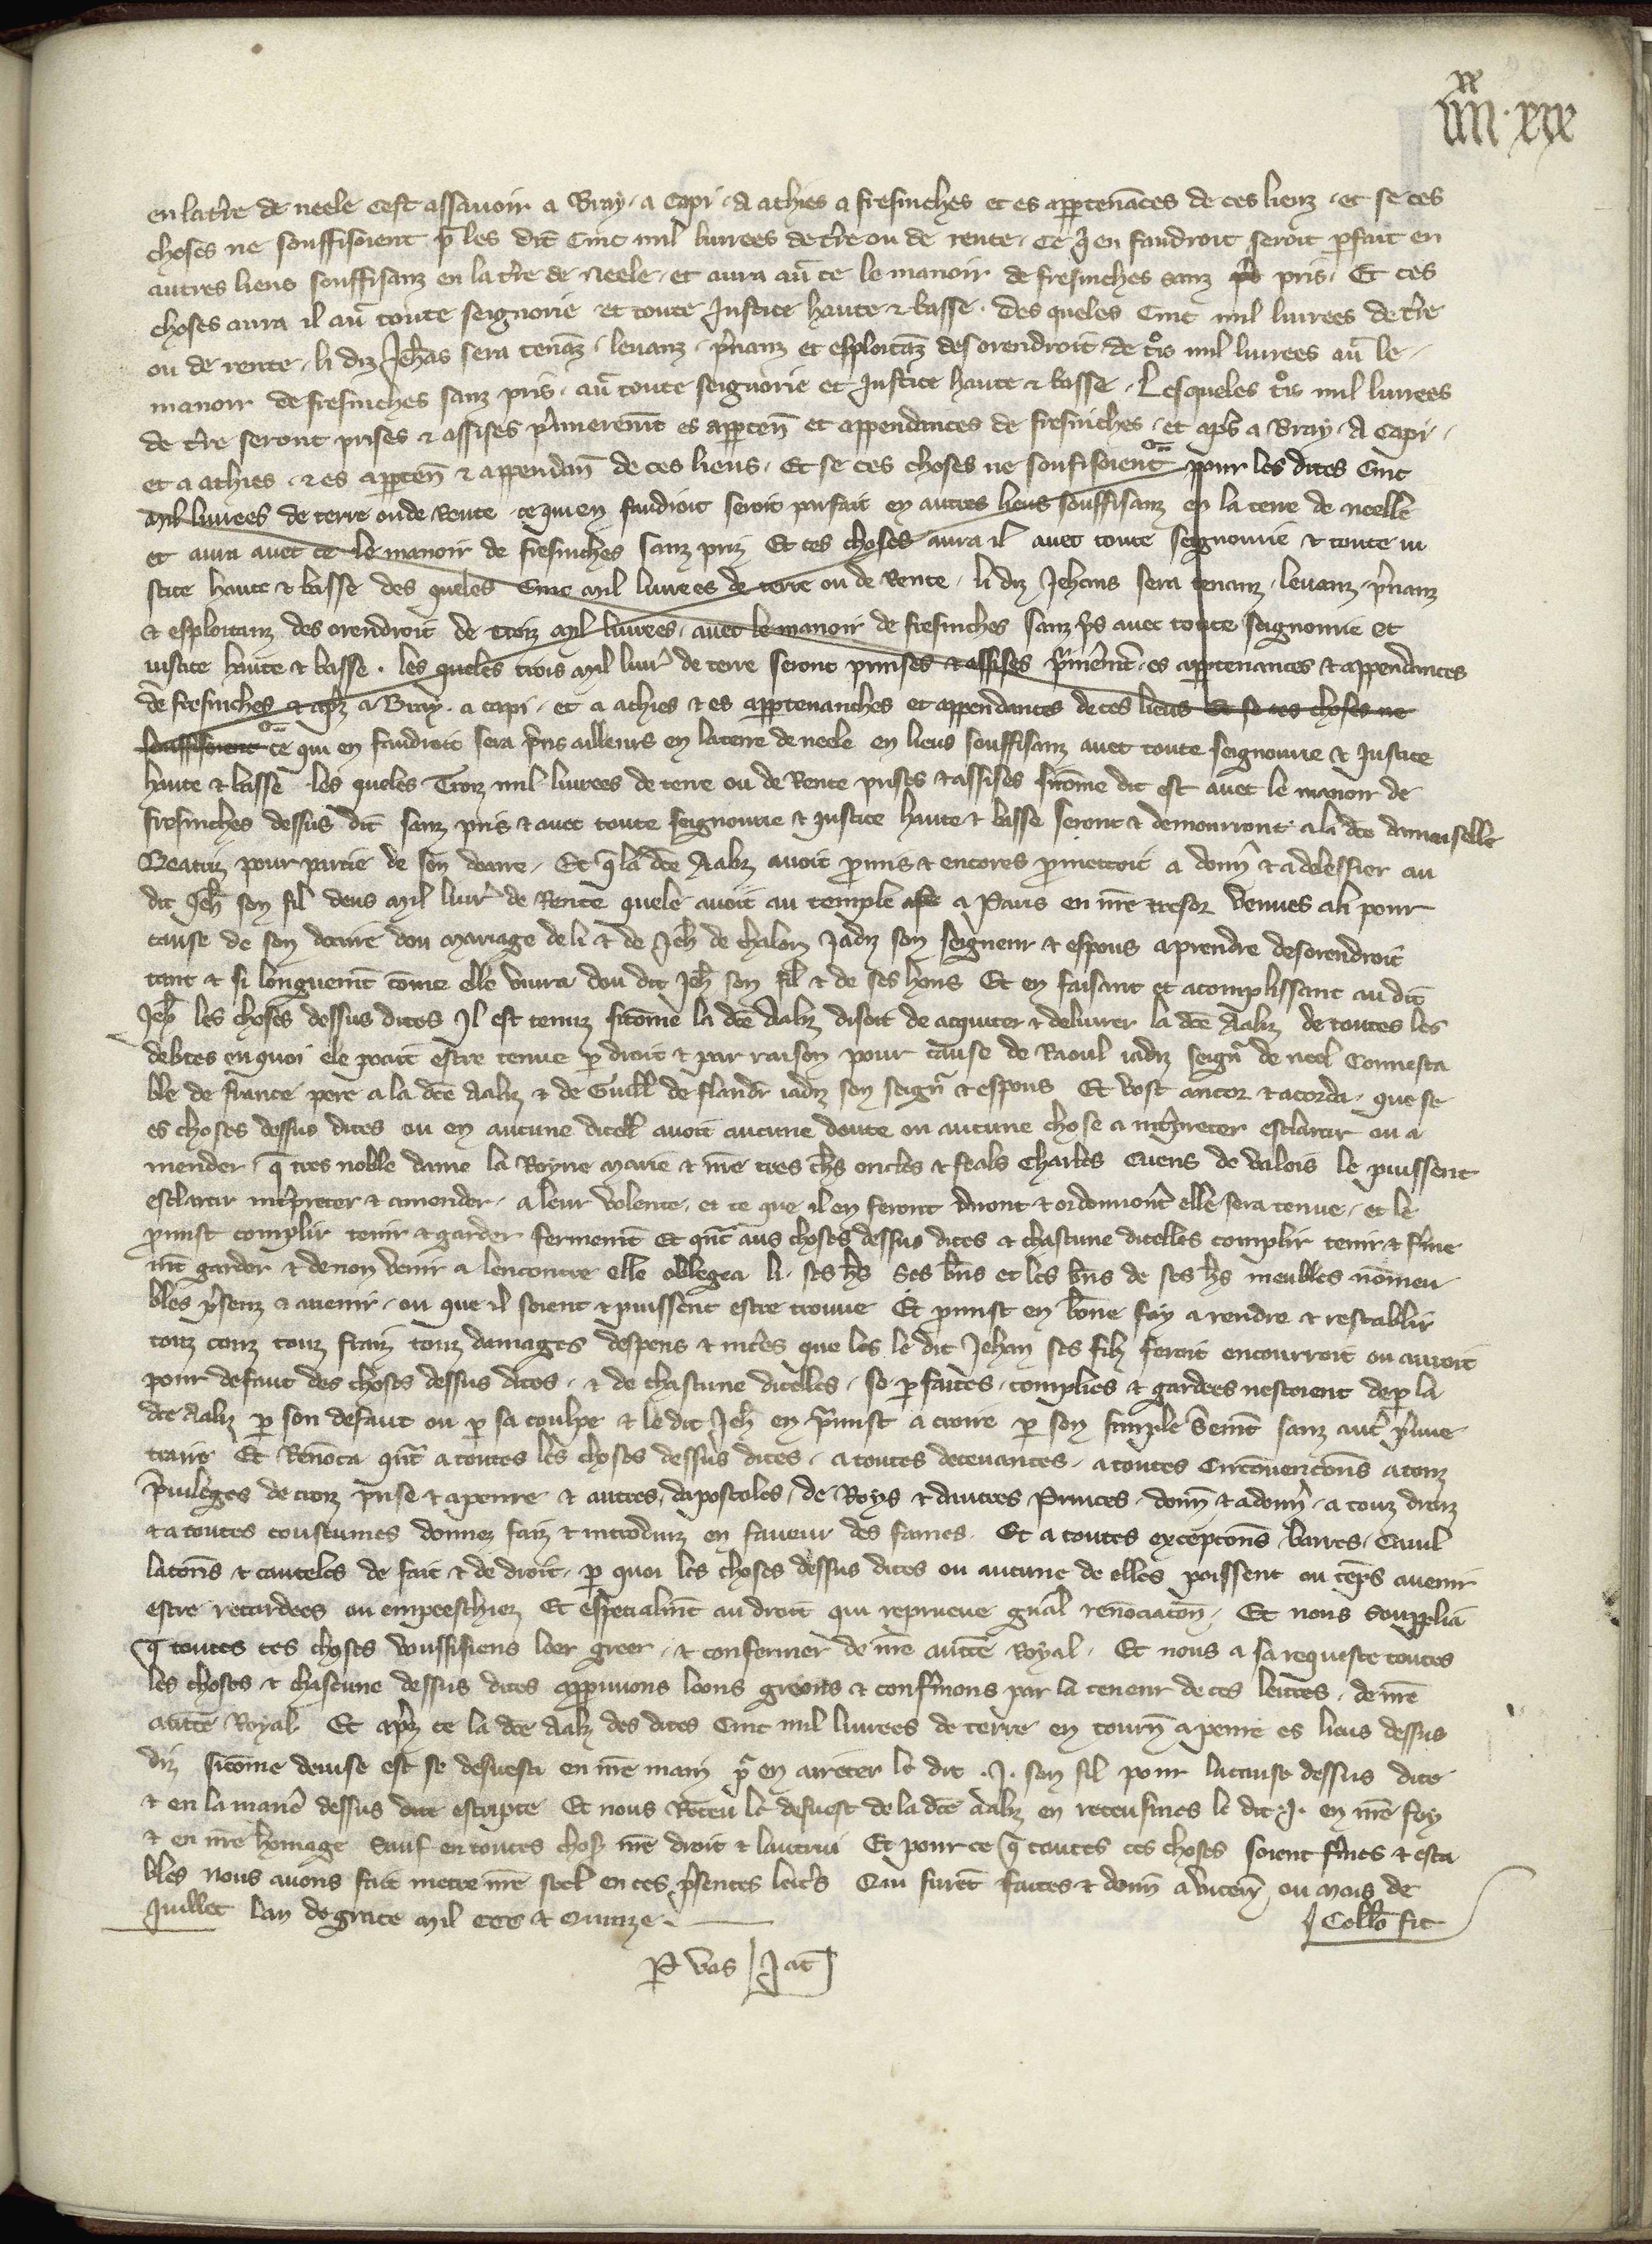 xx
iiii · xix
en la tre de neele cest assavoir a Bray · a Capi · A athies a fresinches et es appertenances de ces lieux · et se ces
choses ne souffisoient pr les dit Cinc mil livrees de tre ou de rente · Ce q en faudroit seroit pfait en
autres lieus souffisanz en la tre de Neele · et aura au ce le manoir de fresinches sanz pris · Et ces
choses aura il au toute seignorie et toute Justice haute & basse · des queles Cinc mil livrees de tre
ou de rente · li diz Jehans sera tenanz · levanz · pnanz et esploitanz desorendroit de trois mil livrees au le
manoir de fresinches sanz pris · au toute seignorie et Justice haute & basse · Lesqueles trois mil livrees
de tre seront prises & assises primerement es apparten et appendances de fresinches · et aps a Bray · A Capi ·
et a athies · & es apparten & appendan de ces lieus · Et se ces choses ne soufisoient pour les dites Cinc
Mil livrees de terre ou de Rente ce qui en faudroit seroit parfait en autres lieus souffisanz en la terre de neelle
et aura avec ce le manoir de fresinches sanz priz Et ces choses aura il avec toute seignourie & toute iu
stice haute & basse des queles Cinc Mil livrees de terre ou de Rente · li diz Jehans sera tenanz · levanz · pnanz
& esploitanz des orendroit de Troiz Mil livrees · avec le manoir de fresinches sanz pris avec toute seignourie et
iustice haute & basse · les queles trois Mil livr de terre seront prinses & assises primement · es appertenances & appendances
de fresinches & apz a Bray · a capi · et a athies & es appertenanches et appendances de ces lieus Et se ces choses ne
souffisoient ce qui en faudroit sera pris ailleurs en la terre de neele en lieus souffisanz avec toute seignourie & Justice
haute & basse les queles Troiz mil livrees de terre ou de Rente prises & assises sicome dit est avec le manoir de
fresinches dessus dit sanz pris & avec toute seignourie & justice haute & basse seront & demourront a la dce damoiselle
Beatriz pour partie de son doaire · Et q la dce Aaliz avoit promis & encores promettoit a donn & a delessier au
dit Jeh son fil deus Mil livr de Rente quele avoit au temple a Paris en nre tresor venues a li pour
cause de son doaire dou mariage de li & de Jeh de chalon Jadiz son seigneur & espous a prendre desorendroit
tant & si longuement come elle vivra dou dit Jeh son fil & de ses hoirs Et en faisant et acomplissant au dit
Jeh les choses dessus dites Il est tenuz sicome la dce Aaliz disoit de acquiter & delivrer la dce Aaliz de toutes les
debtes en quoi ele poait estre tenue p droit & par raison pour cause de Raoul iadiz seign de neel Connesta
ble de france pere a la dce Aaliz & de Guill de flandr iadiz son seign & espous Et vost ancor & acorda · que se
es choses dessus dites ou en aucune dicell avoit aucune doute ou aucune chose a intpreter esclarcir ou a
mender · q tres noble dame la Royne Marie & nre tres chs oncles & feals Charles Cuens de Valois le puissent
esclarcir intpreter & amender · a leur volente · et ce que il en feront diront & ordenront elle sera tenue · et le
pmist complir tenir & garder fermement Et quat aus choses dessus dites & chascune dicelles complir tenir & ferme
ment garder & de non venir a lencontre elle oblega li · ses hs ses bns et les bns de ses hs meubles nommeu
bles psenz & avenir · ou que il soient & puissent estre trouve Et pmist en bone foy a rendre & restablir
touz couz touz fraiz touz damages despens & intes que les le dit Jehan ses filz feroit encourroit ou auroit
pour defaut des choses dessus dites · & de chascune diceles · se p faites · complies & gardees nestoient de p la
dce Aaliz p son defaut ou p sa coulpe & le dit Jeh en pmist a croire p son simple serement sanz autr prueve
traire Et Renonca quat a toutes les choses dessus dites · a toutes decevances · a toutes Circonvencions a touz
privileges de croiz prise & a penre & autres · dapostoles · de Roys & dautres Princes · donn & a donn · a touz droiz
& a toutes coustumes donnez faiz & introduiz en faveur des fames · Et a toutes excepcions barres · Cavil
lacions & cauteles de fait & de droit · p quoi les choses dessus dites ou aucune de elles poissent ou teps avenir
estre retardees ou empeeschiez Et especialment au droit qui reprueve gnal renonciacion · Et nous supplia
q toutes ces choses voussissiens loer greer · & confermer de nre aucte Royal · Et nous a sa requeste toutes
les choses & chascune dessus dites apprvons loons greons & confmons par la teneur de ces lettres · de nre
aucte Royal Et apz ce la dce Aaliz des dites Cinc mil livrees de terre en tourn a penre es lieus dessus
diz sicome devise est se desvesti en nre main pr en aireter le dit · J · son fil pour la cause dessus dite
& en la mane dessus dite escripte Et nous Receu le desvest de la dce Aaliz en receusmes le dit · J · en nre foy
& en nre homage Sauf en toutes chos nre droit & lautrui Et pour ce q toutes ces choses soient fmes & esta
bles nous avons fait metre nre seel en ces psentes lettrs Qui furet faites & donn a Vicen ou mois de
Juillet lan de grace Mil CCC & Quinze
Coll fit
P vos Jac